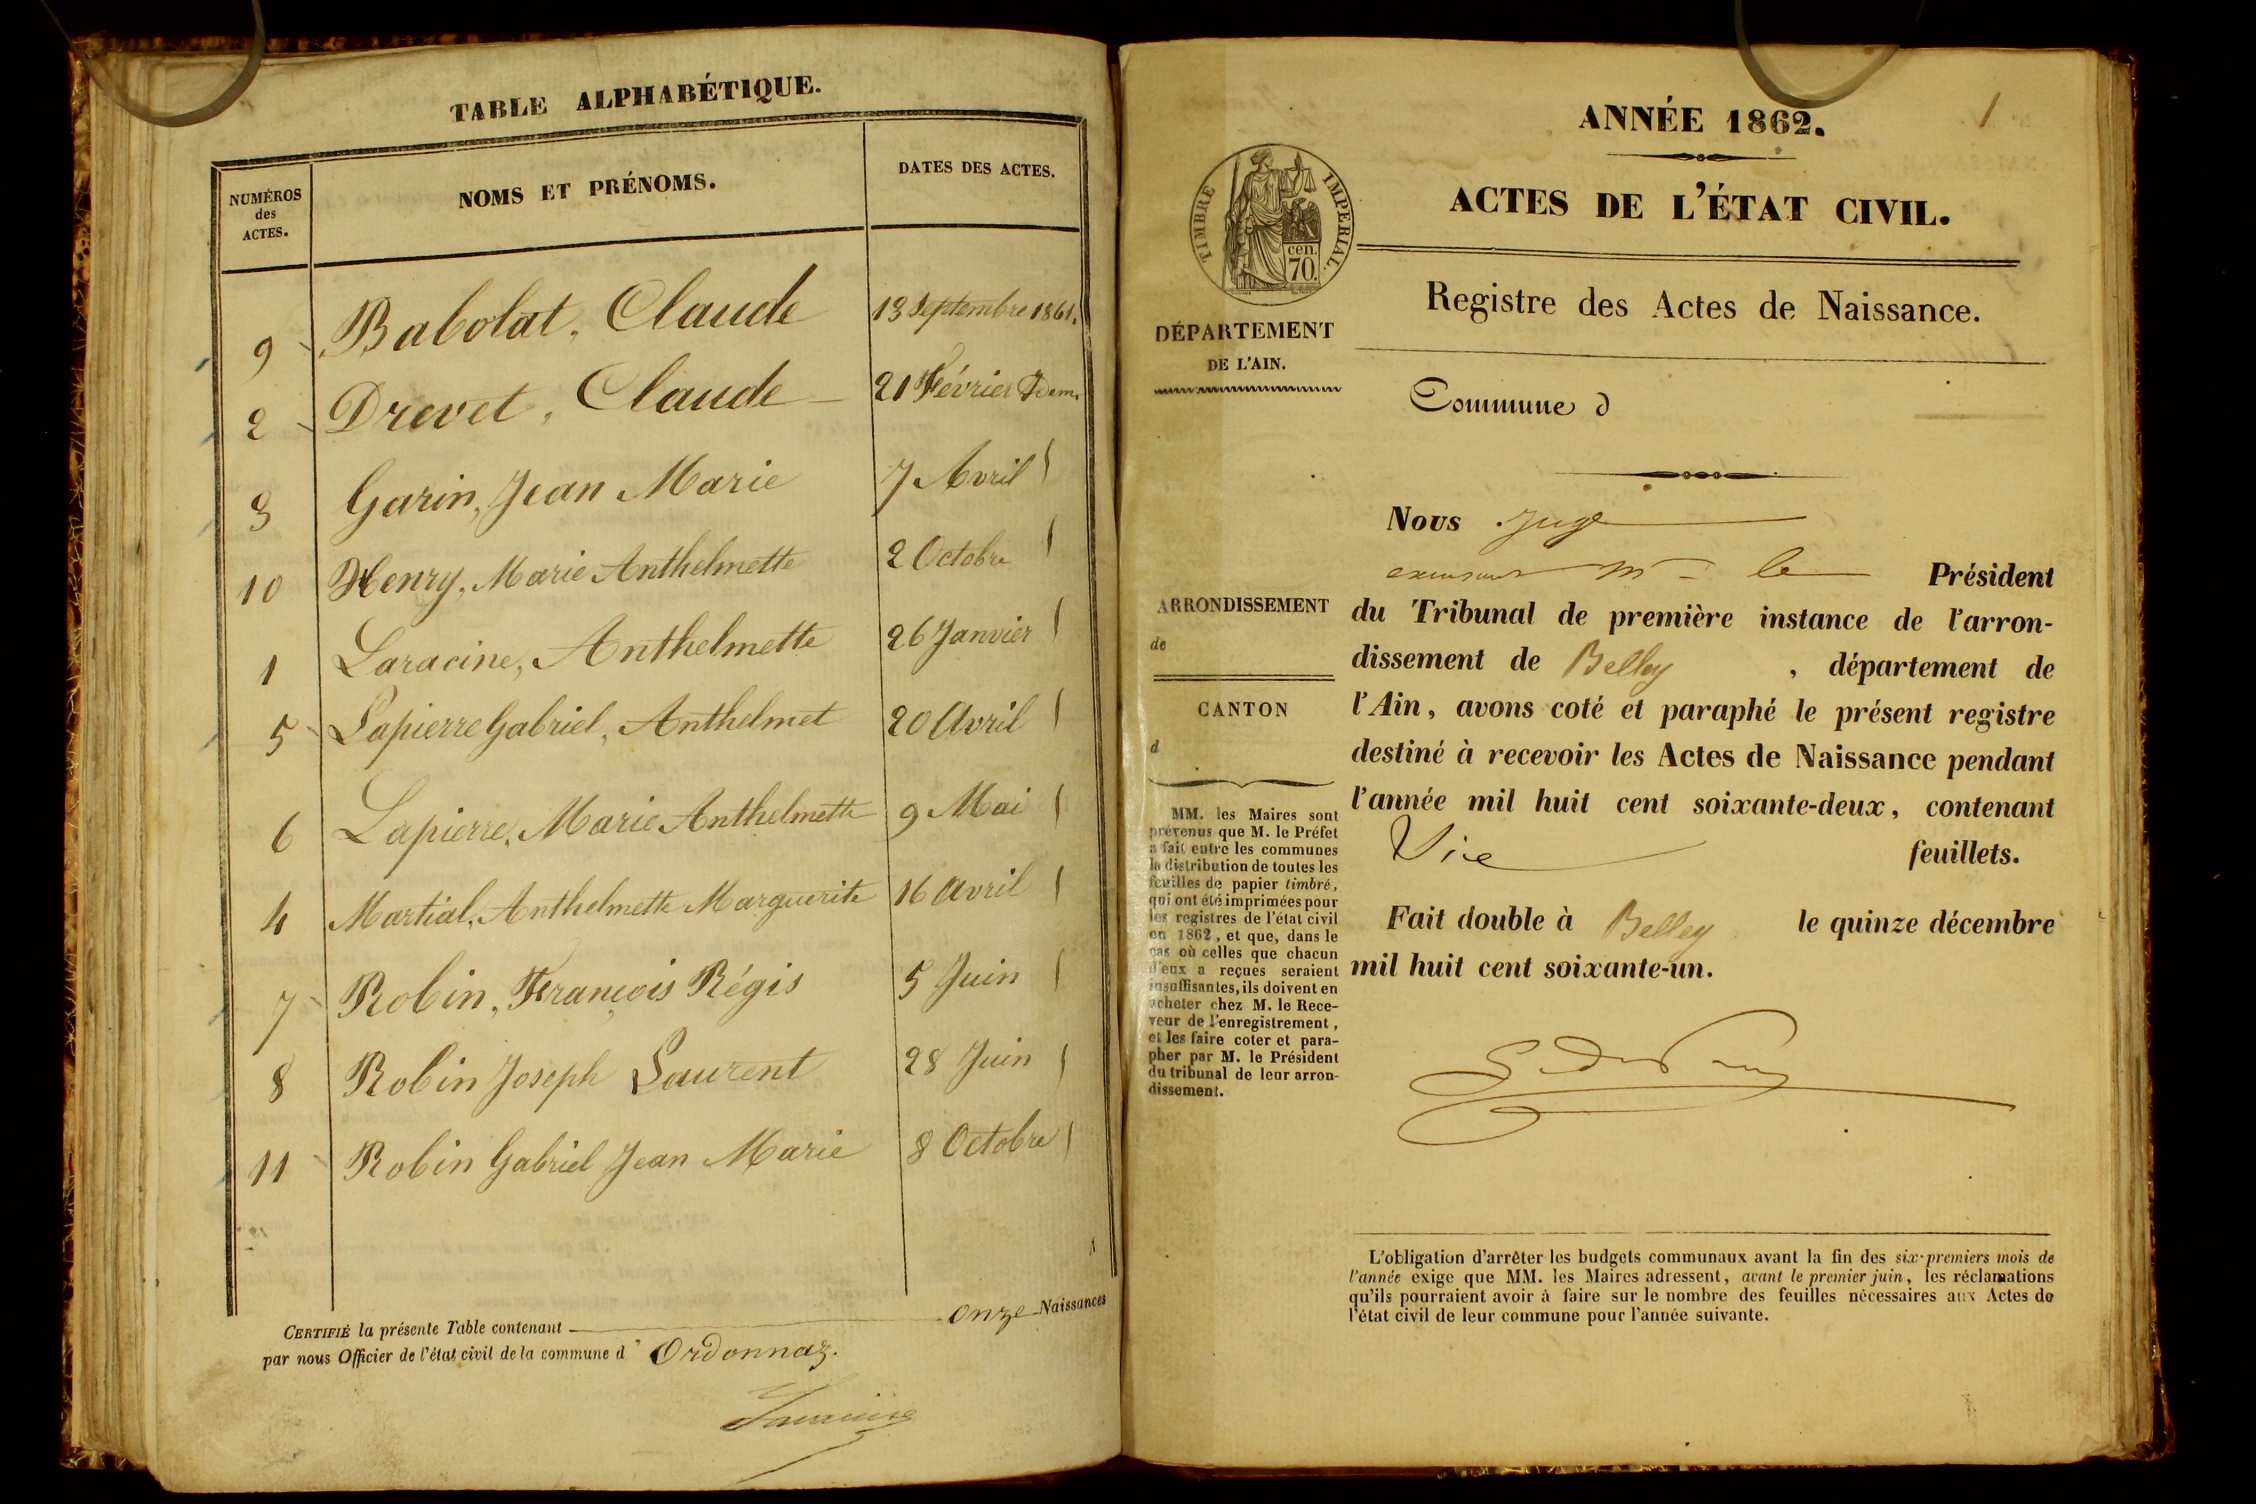 TABLE ALPHABÉTIQUE.
NUMÉROS
des
ACTES.
NOMS ET PRÉNOMS.
DATES DES ACTES.
9 Babolat, Claude 13 Septembre 1861.
2 Drevet, Claude 21 Février Idem.
3 Garin, Jean Marie 7 Avril
10 Henry, Marie Anthelmette 2 Octobre
1 Laracine, Anthelmette 26 Janvier
5 Lapierre Gabriel, Anthelmet 20 Avril
6 Lapierre, Marie Anthelmette 9 Mai
4 Martial, Anthelmette Marguerite 16 Avril
7 Robin, François Régis 5 Juin
8 Robin Joseph Laurent 28 Juin
11 Robin Gabriel Jean Marie 8 Octobre
CERTIFIÉ la présente Table contenant onze Naissances
par nous Officier de l'état civil de la commune d'Ordonnaz.
1
ANNÉE 1862.
ACTES DE L'ÉTAT CIVIL.
TIMBRE IMPERIAL.
cen.
70.
Registre des Actes de Naissance.
DÉPARTEMENT
DE L'AIN.
Commune d
ARRONDISSEMENT
de
CANTON
d
MM. les Maires sont
prévenus que M. le Préfet
a fait entre les communes
la distribution de toutes les
feuilles de papier timbré,
qui ont été imprimées pour
les registres de l'état civil
en 1862, et que, dans le
cas où celles que chacun
d'eux a reçues seraient
insuffisantes, ils doivent en
acheter chez M. le Rece-
veur de l'enregistrement,
et les faire coter et para-
pher par M. le Président
du tribunal de leur arron-
dissement.
Nous Juge
le Président
du Tribunal de première instance de l'arron-
dissement de Belley, département de
l'Ain, avons coté et paraphé le présent registre
destiné à recevoir les Actes de Naissance pendant
l'année mil huit cent soixante-deux, contenant
feuillets.
Fait double à Belley le quinze décembre
mil huit cent soixante-un.
L'obligation d'arrêter les budgets communaux avant la fin des six premiers mois de
l'année exige que MM. les Maires adressent, avant le premier juin, les réclamations
qu'ils pourraient avoir à faire sur le nombre des feuilles nécessaires aux Actes de
l'état civil de leur commune pour l'année suivante.